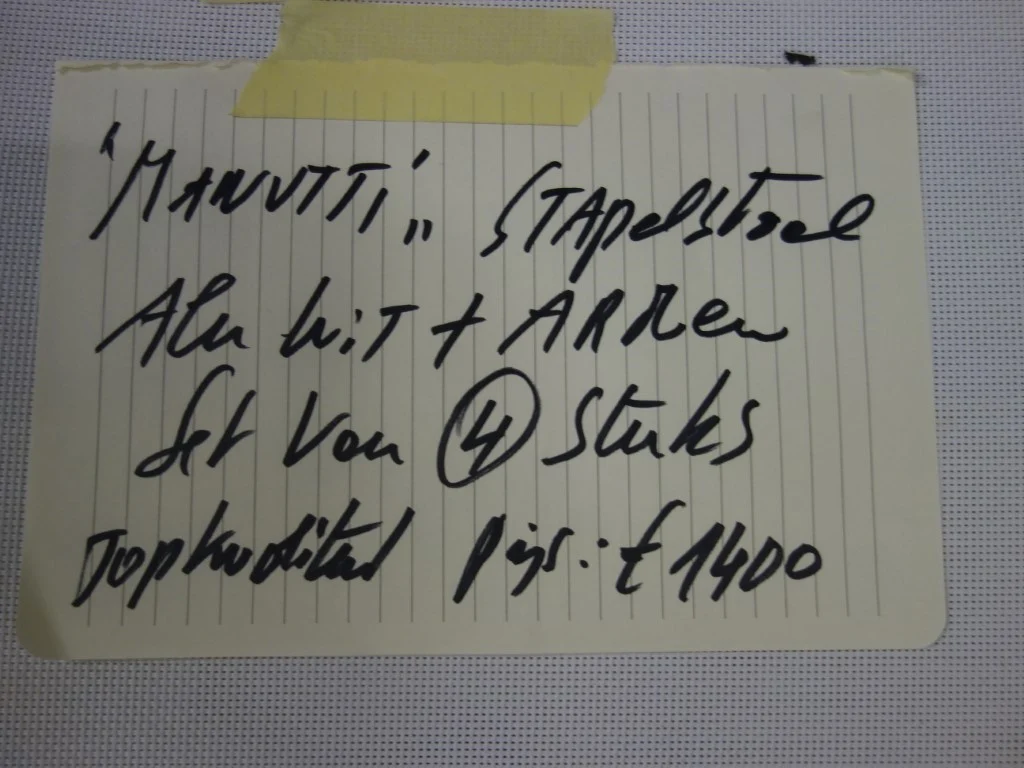 "MANUTTI" STApelStoel
Alu WiT + ARMen
Set Van 4 Stuks
Topkwaliteit Prijs: € 1400